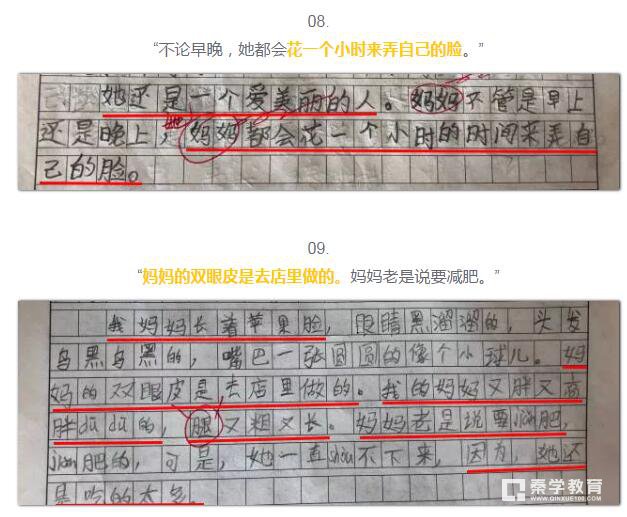 08.
“不论早晚，她都会花一个小时来弄自己的脸。”
她还是一个爱美丽的人。妈妈不管是早上
还是晚上，她妈妈都会花一个小时的时间来弄自
己的脸。
09.
“妈妈的双眼皮是去店里做的。妈妈老是说要减肥。”
我妈妈长着苹果脸，眼睛黑溜溜的，头发
乌黑乌黑的，嘴巴一张圆圆的像个小球儿。妈
妈的双眼皮是去店里做的。我的妈妈又胖又高
胖dūdū的，腿又粗又长。妈妈老是说要jiǎn肥，
jiǎn肥的，可是，她一直shòu不下来，因为，她还
是吃的太多。
秦学教育
WWW.QINXUE100.COM